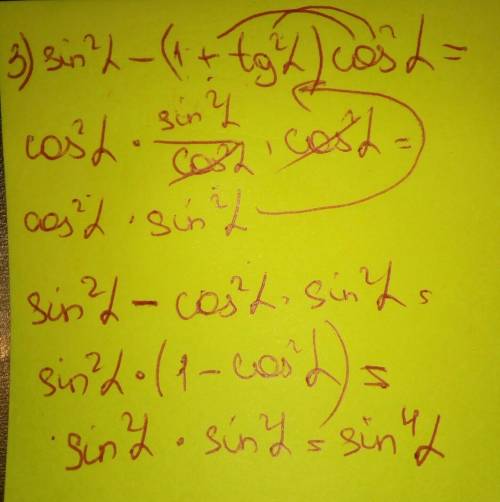 3) sin²α - (1 + tg²α) cos²α =
cos²α · sin²α/cos²α · cos²α =
cos²α · sin²α
sin²α - cos²α · sin²α =
sin²α · (1 - cos²α) =
sin²α · sin²α = sin⁴α